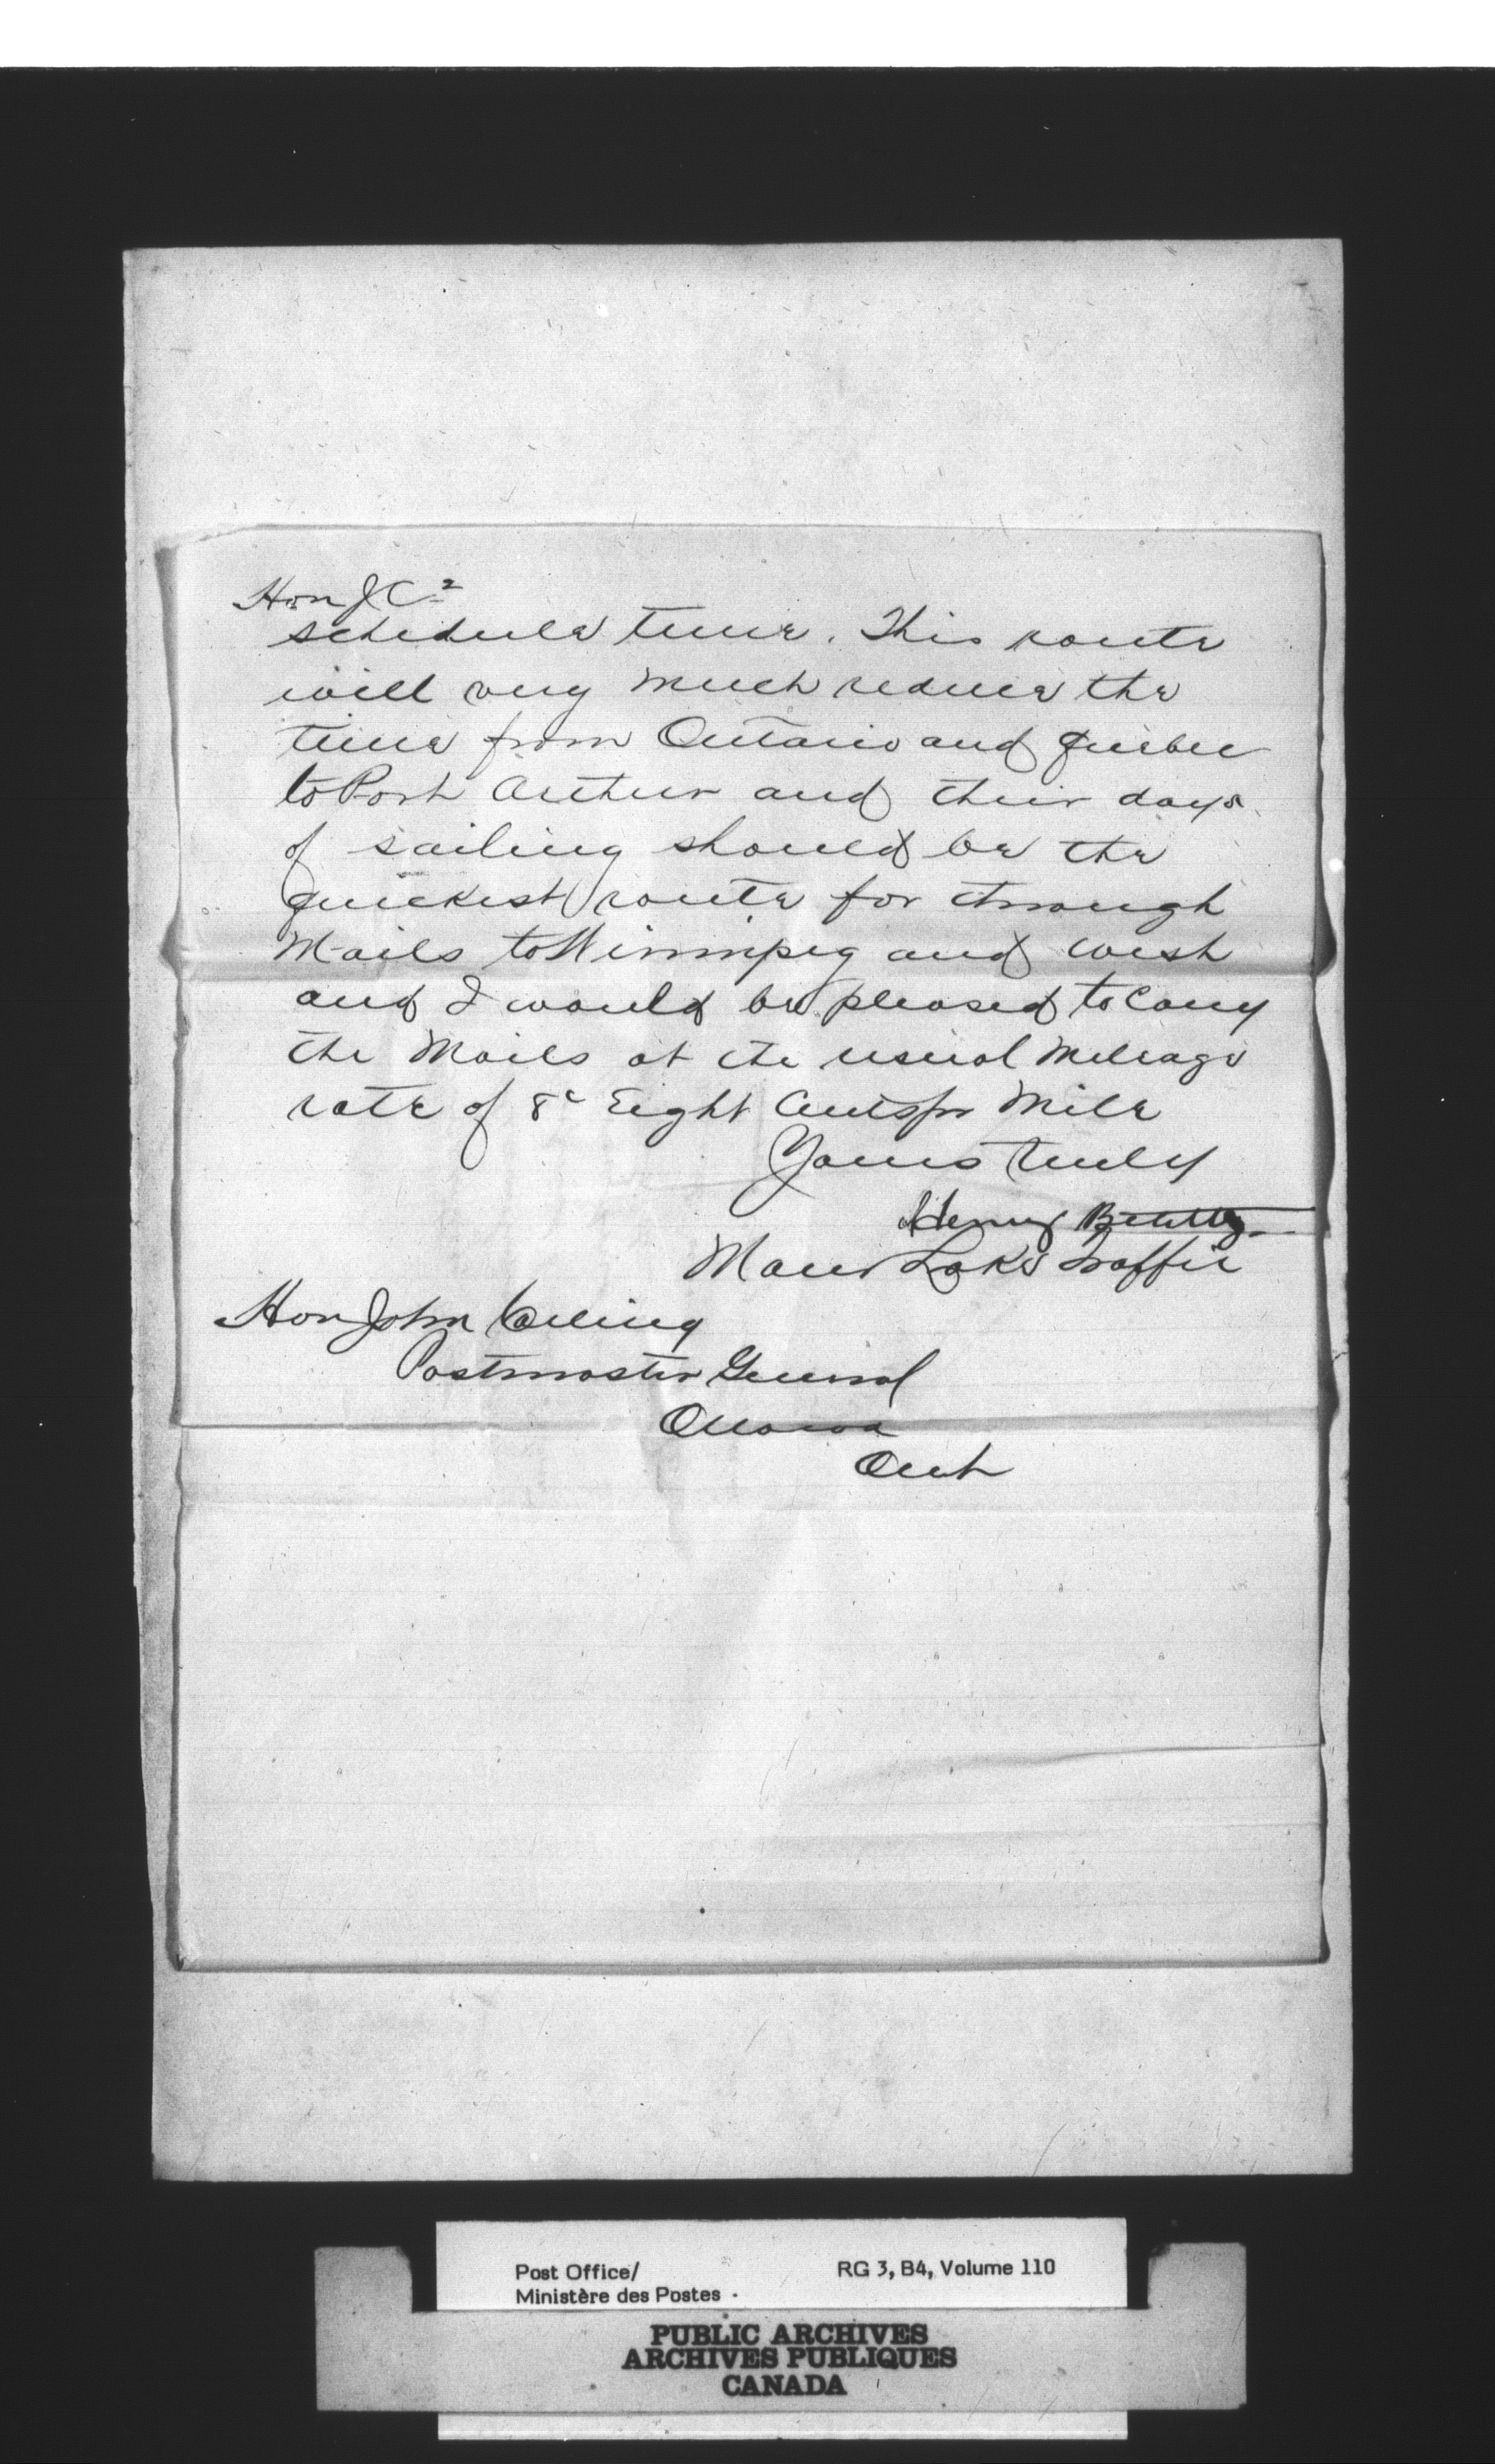 Hon J C 2
schedule time. This route
will very much reduce the
time from Ontario and Quebec
to Port Arthur and their days
of sailing should be the
quickest route for through
Mails to Winnipeg and West
and I would be pleased to Carry
the Mails at the usual Mileage
rate of 8c Eight Cents pr Mile
Yours Truly
Henry Beatty
Manr Lake Traffic
Hon John Carling
Postmaster General
Ottawa
Ont
Post Office/ RG 3, B4, Volume 110
Ministère des Postes
PUBLIC ARCHIVES
ARCHIVES PUBLIQUES
CANADA